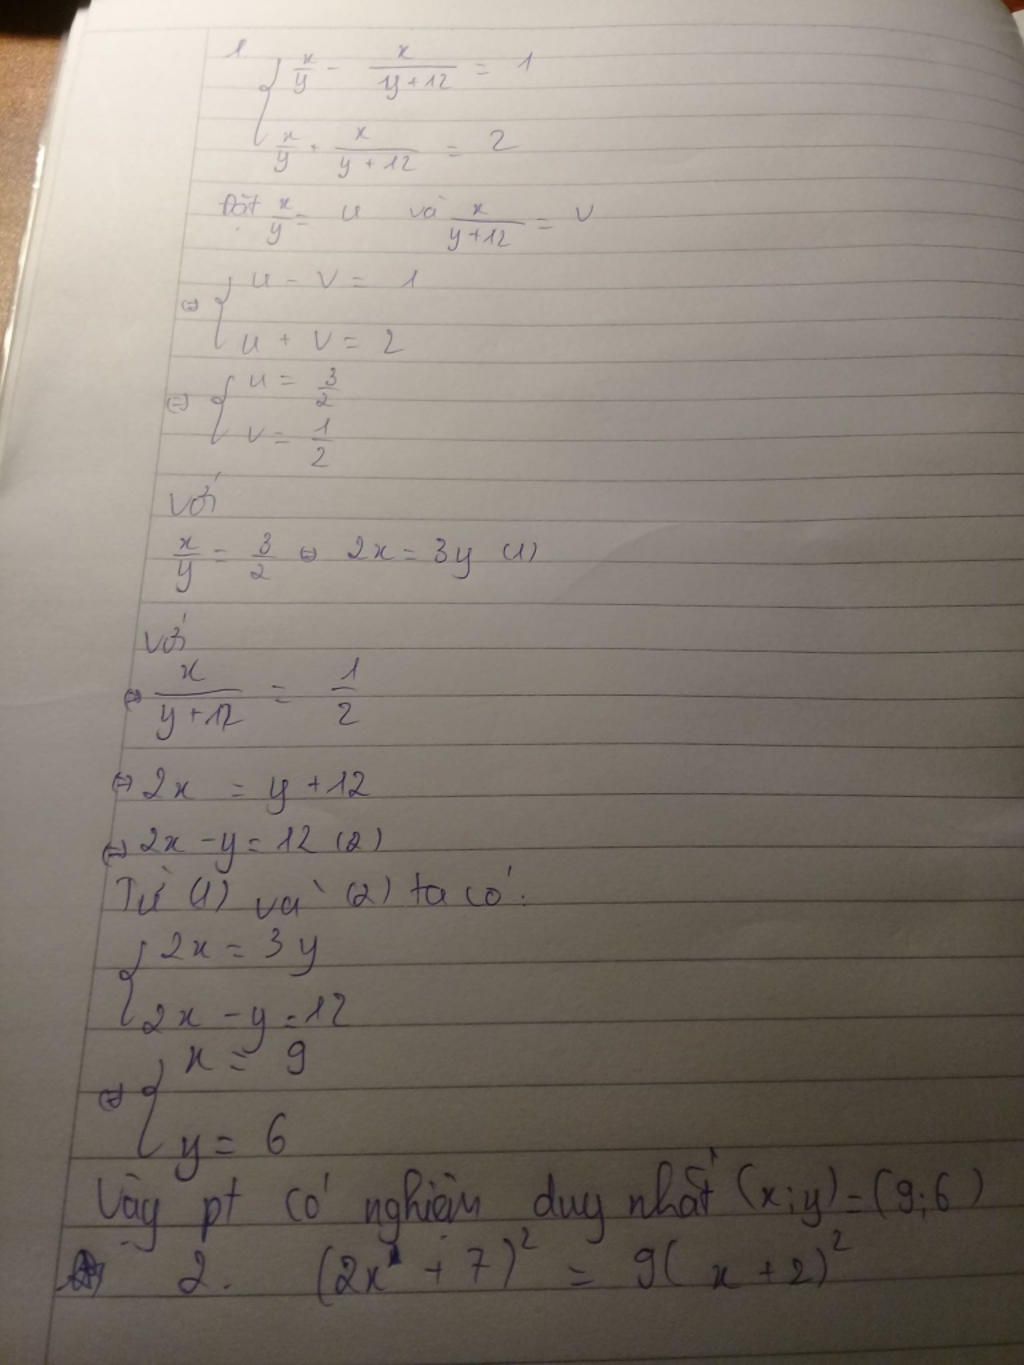 1. { x/y - x/(y+12) = 1
x/y + x/(y+12) = 2
Đặt x/y = u và x/(y+12) = v
⇔ { u - v = 1
u + v = 2
⇔ { u = 3/2
v = 1/2
Với
x/y = 3/2 ⇔ 2x = 3y (1)
Với
⇔ x/(y+12) = 1/2
⇔ 2x = y + 12
⇔ 2x - y = 12 (2)
Từ (1) và (2) ta có:
{ 2x = 3y
2x - y = 12
⇔ { x = 9
y = 6
Vậy pt có nghiệm duy nhất (x;y) = (9;6)
2. (2x + 7)² = 9(x + 2)²